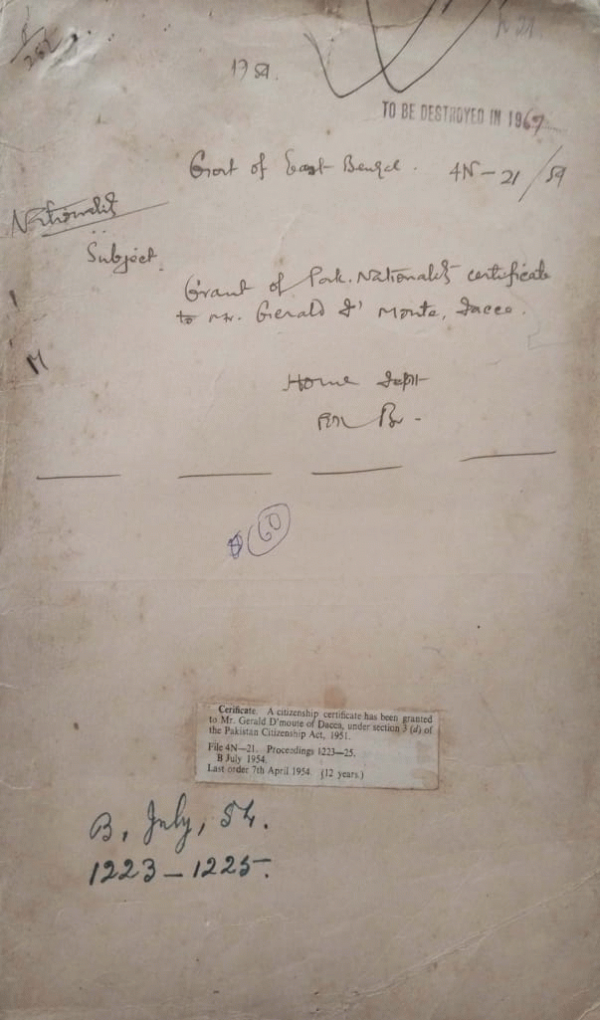 TO BE DESTROYED IN 1967
Govt of East Bengal. 4N-21/54
Nationality
Subject.
Grant of Pak. Nationality certificate
to Mr. Gerald D' Monte, Dacca.
Home Deptt
60
Cerificate. A citizenship certificate has been granted
to Mr. Gerald D'monte of Dacca, under section 3 (d) of
the Pakistan Citizenship Act, 1951.
File 4N—21. Proceedings 1223—25.
B July 1954.
Last order 7th April 1954. (12 years.)
B, July, 54.
1223 - 1225.